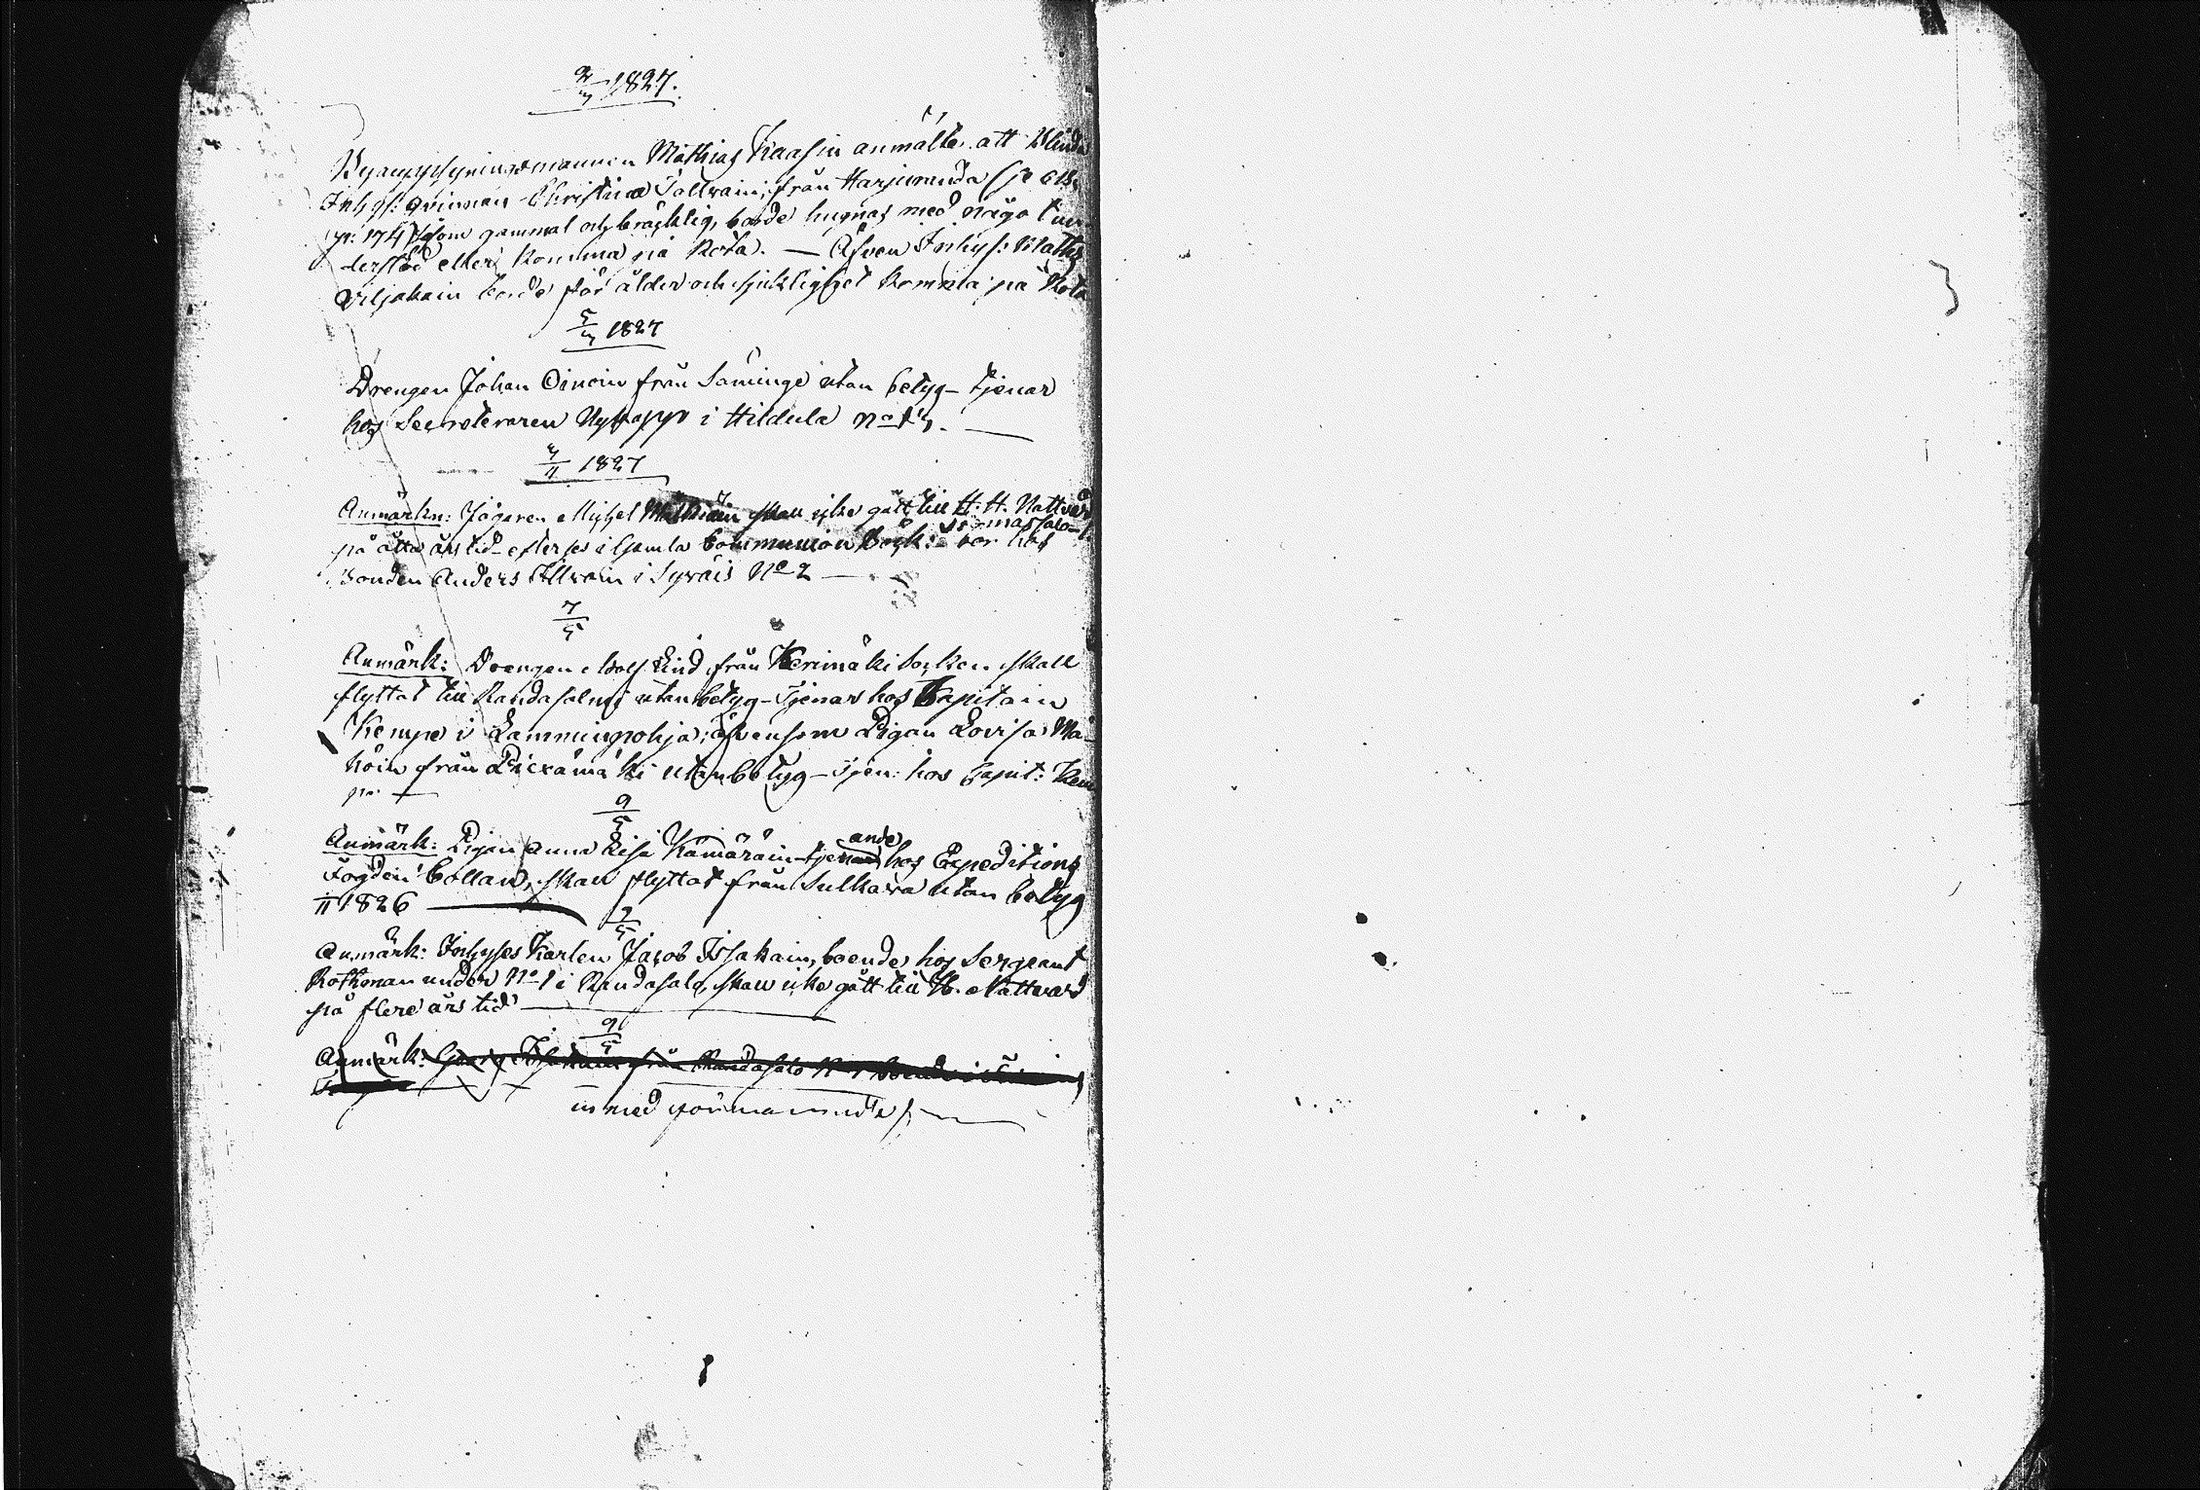 1827.
Byauppsyningsmannen Mathias Kaasin anmälte att Blinda
Inhys: qvinnan Christina Tallvain, från Harjuranda
som gammal och bräcklig, borde hugnas med någo t un-
derstöd eller komma på Rota. — Äfven Inhys: Maths
Viljakain borde för ålder och sjuklighet komma på Rota
1827
Drengen Johan Oinoin från Säminge utan betyg – tjenar
hos Secreteraren Nykopp i Hildula No
7/11 1827
Anmärkn: Jägaren Michel skall icke gått till H. H. Nattvard
på åtta års tid – efterses i Gamla Communion Bok: – bor hos
Bonden Anders i Syväis No 2 —
7/5
Anmärk: Drengen Adolf Lind från Kerimäki Socken skall
flyttat till Randasalmi utan betyg – Tjenar hos Capitain
Kempe i Lamminpohja; äfvensom Pigan Lovisa Ma-
höin från Piexämäki utan betyg – Tjen: hos Capit: Kem
pe —
9/5
Anmärk: Pigan Anna Lisa Kämäräin – tjenande hos Expeditions
Fogden Collan, skall flyttat från Sulkava utan betyg
11 1826 —
9/5
Anmärk: Inhyses Karlen Jacob Issakain, boende hos Sergeant
Rothman under No 1 i Randasalo, skall icke gått till H. Nattvard
på flere års tid —
9/5
Anmärk: från Randasalo No 1